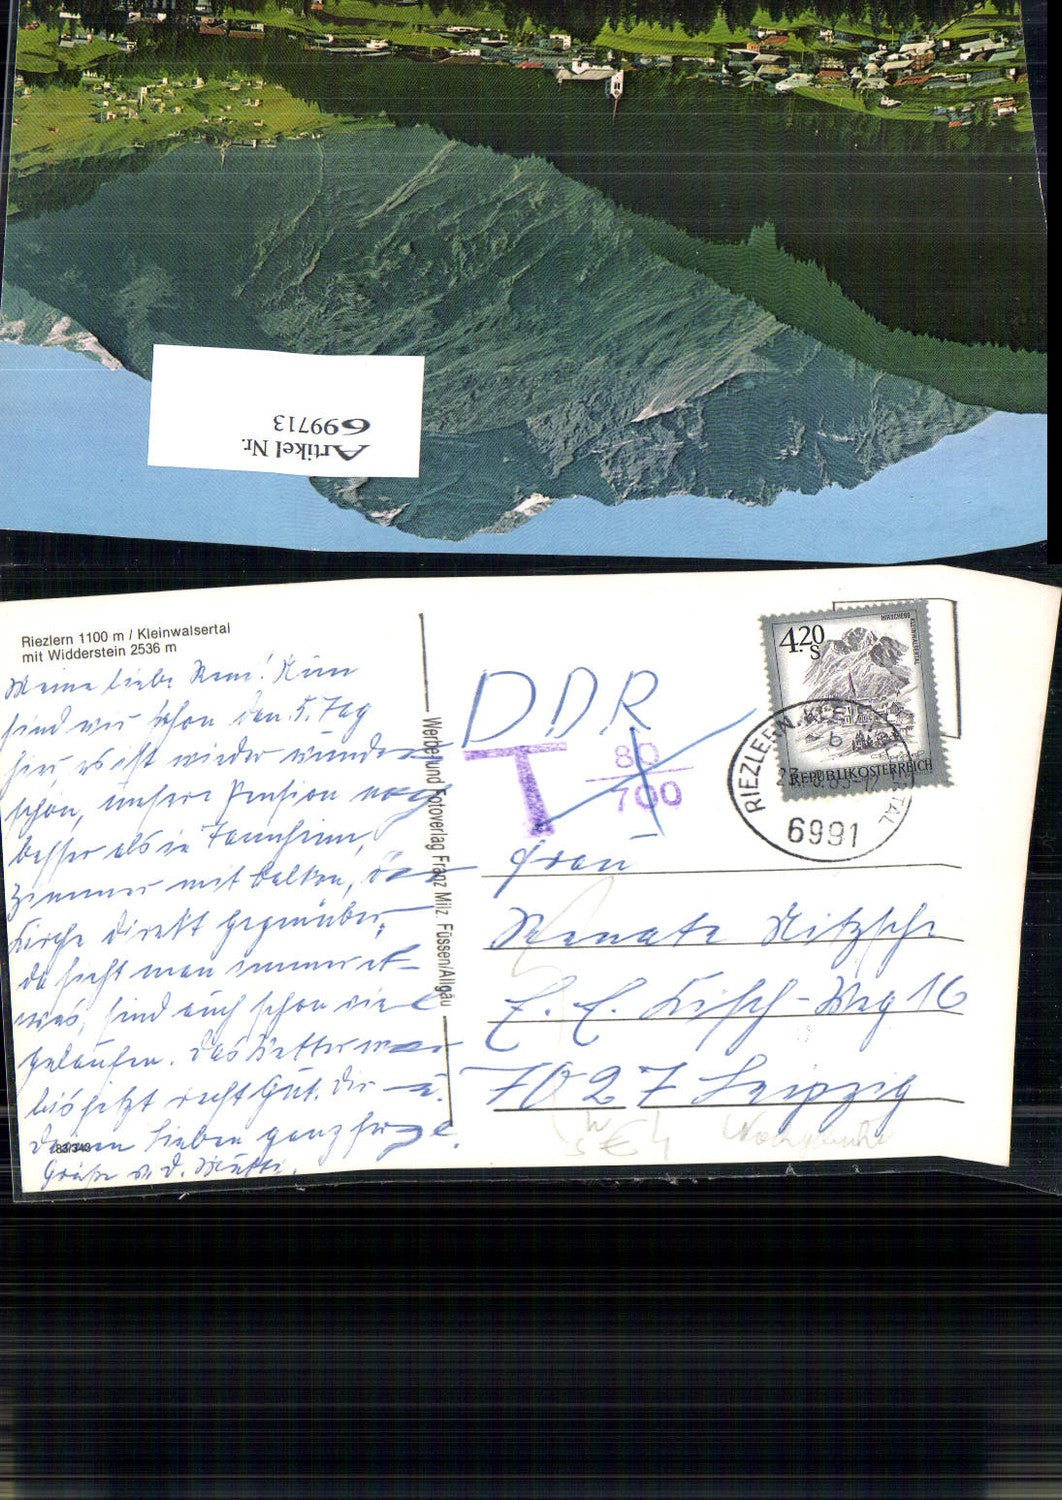 Artikel Nr.
699713
Riezlern 1100 m / Kleinwalsertal
mit Widderstein 2536 m
Meine liebe Reni! Nun
sind wir schon den 5. Tag
hier, es ist wieder wunder-
schön, unsere Pension noch
besser als in Tannheim,
Zimmer mit Balkon, die
Kirche direkt gegenüber,
da sieht man immer et-
was, sind auch schon viel
gelaufen. Das Wetter war
bis jetzt recht gut. Dir u.
Deinen Lieben ganz herzl.
Grüße v. d. Mutti.
83/343
Werbe- und Fotoverlag Franz Milz, Füssen/Allgäu
DDR
T 80
700
HIRSCHEGG KLEINWALSERTAL
4.20 S
REPUBLIK ÖSTERREICH
RIEZLERN
b
6991
Frau
Renate Nitzsche
E. E. Kisch-Weg 16
7027 Leipzig